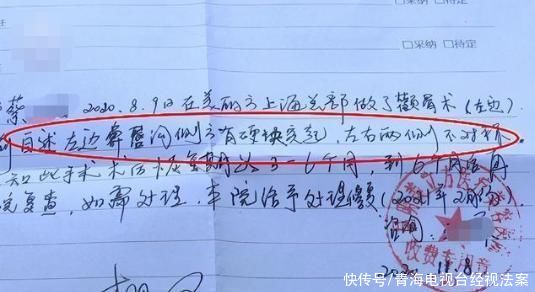 □采纳 □待定
□采纳 □待定
蔡 2020.8.9日在美丽方上海总部做了颧骨术(左边).
自述左边鼻唇沟侧方有硬块突起,左右两侧不对称.
知此手术术后恢复期为3-6个月,到6个月后
院复查,如需处理,本院给予处理修复(2021年2月
2020.11.8.
收费专用章
快传号/青海电视台经视法案